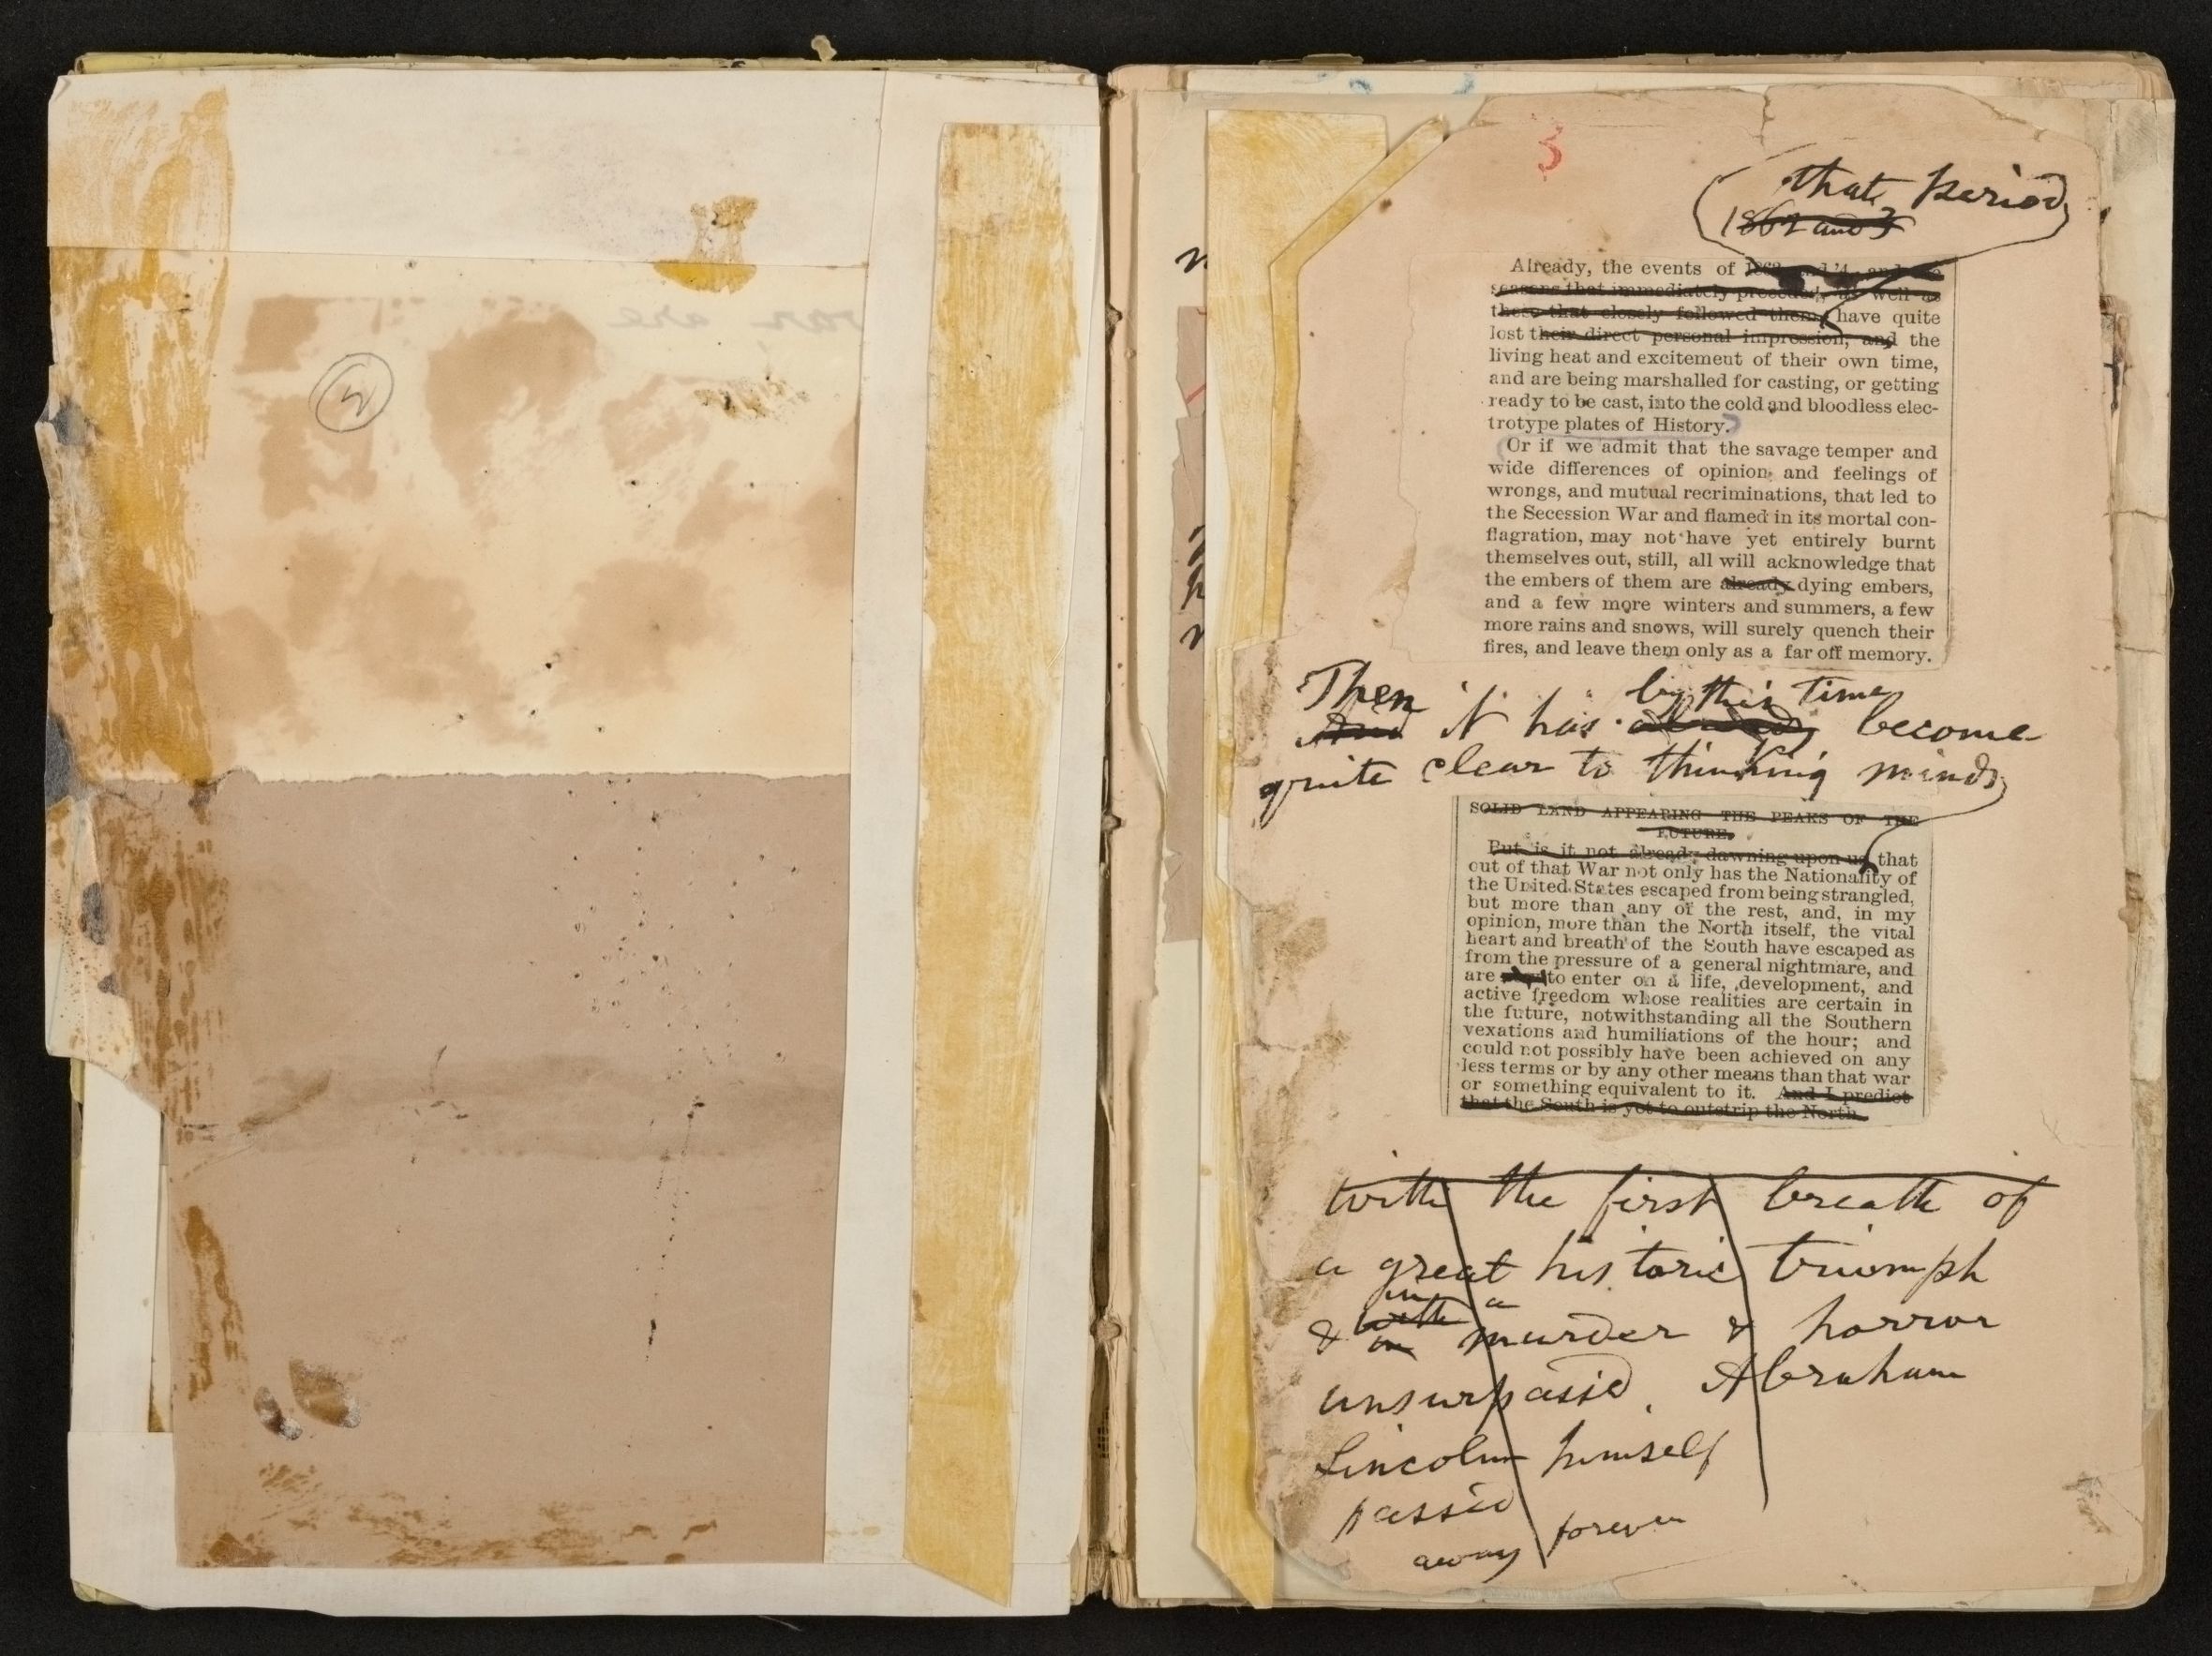 3
3
that period
1862 and 3
Already, the events of 1863 and '4, and the
seasons that immediately preceded, as well as
those that closely followed them, have quite
lost their direct personal impression, and the
living heat and excitement of their own time,
and are being marshalled for casting, or getting
ready to be cast, into the cold and bloodless elec-
trotype plates of History.
Or if we admit that the savage temper and
wide differences of opinion and feelings of
wrongs, and mutual recriminations, that led to
the Secession War and flamed in its mortal con-
flagration, may not have yet entirely burnt
themselves out, still, all will acknowledge that
the embers of them are already dying embers,
and a few more winters and summers, a few
more rains and snows, will surely quench their
fires, and leave them only as a far off memory.
Then by this time
And it has already become
quite clear to thinking minds
SOLID LAND APPEARING THE PEAKS OF THE
FUTURE.
But is it not already dawning upon us that
out of that War not only has the Nationality of
the United States escaped from being strangled,
but more than any of the rest, and, in my
opinion, more than the North itself, the vital
heart and breath of the South have escaped as
from the pressure of a general nightmare, and
are to enter on a life, development, and
active freedom whose realities are certain in
the future, notwithstanding all the Southern
vexations and humiliations of the hour; and
could not possibly have been achieved on any
less terms or by any other means than that war
or something equivalent to it. And I predict
that the South is yet to outstrip the North.
with the first breath of
a great historic triumph
in a
& with murder & horror
in
unsurpassed. Abraham
Lincoln himself
passed
away forever